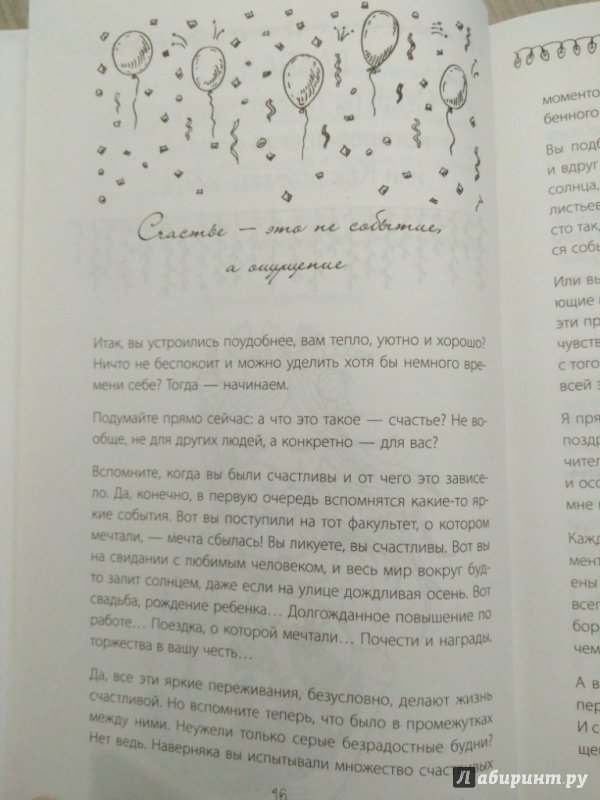 Счастье — это не событие,
а ощущение
Итак, вы устроились поудобнее, вам тепло, уютно и хорошо?
Ничто не беспокоит и можно уделить хотя бы немного вре-
мени себе? Тогда — начинаем.
Подумайте прямо сейчас: а что это такое — счастье? Не во-
обще, не для других людей, а конкретно — для вас?
Вспомните, когда вы были счастливы и от чего это зависе-
ло. Да, конечно, в первую очередь вспомнятся какие-то яр-
кие события. Вот вы поступили на тот факультет, о котором
мечтали, — мечта сбылась! Вы ликуете, вы счастливы. Вот вы
на свидании с любимым человеком, и весь мир вокруг буд-
то залит солнцем, даже если на улице дождливая осень. Вот
свадьба, рождение ребенка… Долгожданное повышение по
работе… Поездка, о которой мечтали… Почести и награды,
торжества в вашу честь…
Да, все эти яркие переживания, безусловно, делают жизнь
счастливой. Но вспомните теперь, что было в промежутках
между ними. Неужели только серые безрадостные будни?
Нет ведь. Наверняка вы испытывали множество счастливых
16
моменто
бенного
Вы подб
и вдруг
солнца,
листьев
сто так,
ся собы
Или вы
ющие
эти пр
чувств
с того
всей з
Я пря
поздр
чител
и осо
мне
Кажд
мент
ены
всег
бор
чем
А в
пер
И с
щен
Лабиринт.ру